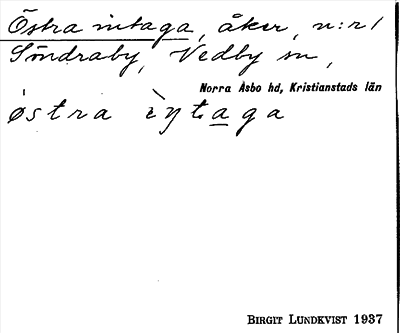 Östra intaga, åker, n:r 1
Söndraby, Vedby sn,
Norra Åsbo hd, Kristianstads län
østra ìntaga
BIRGIT LUNDKVIST 1937